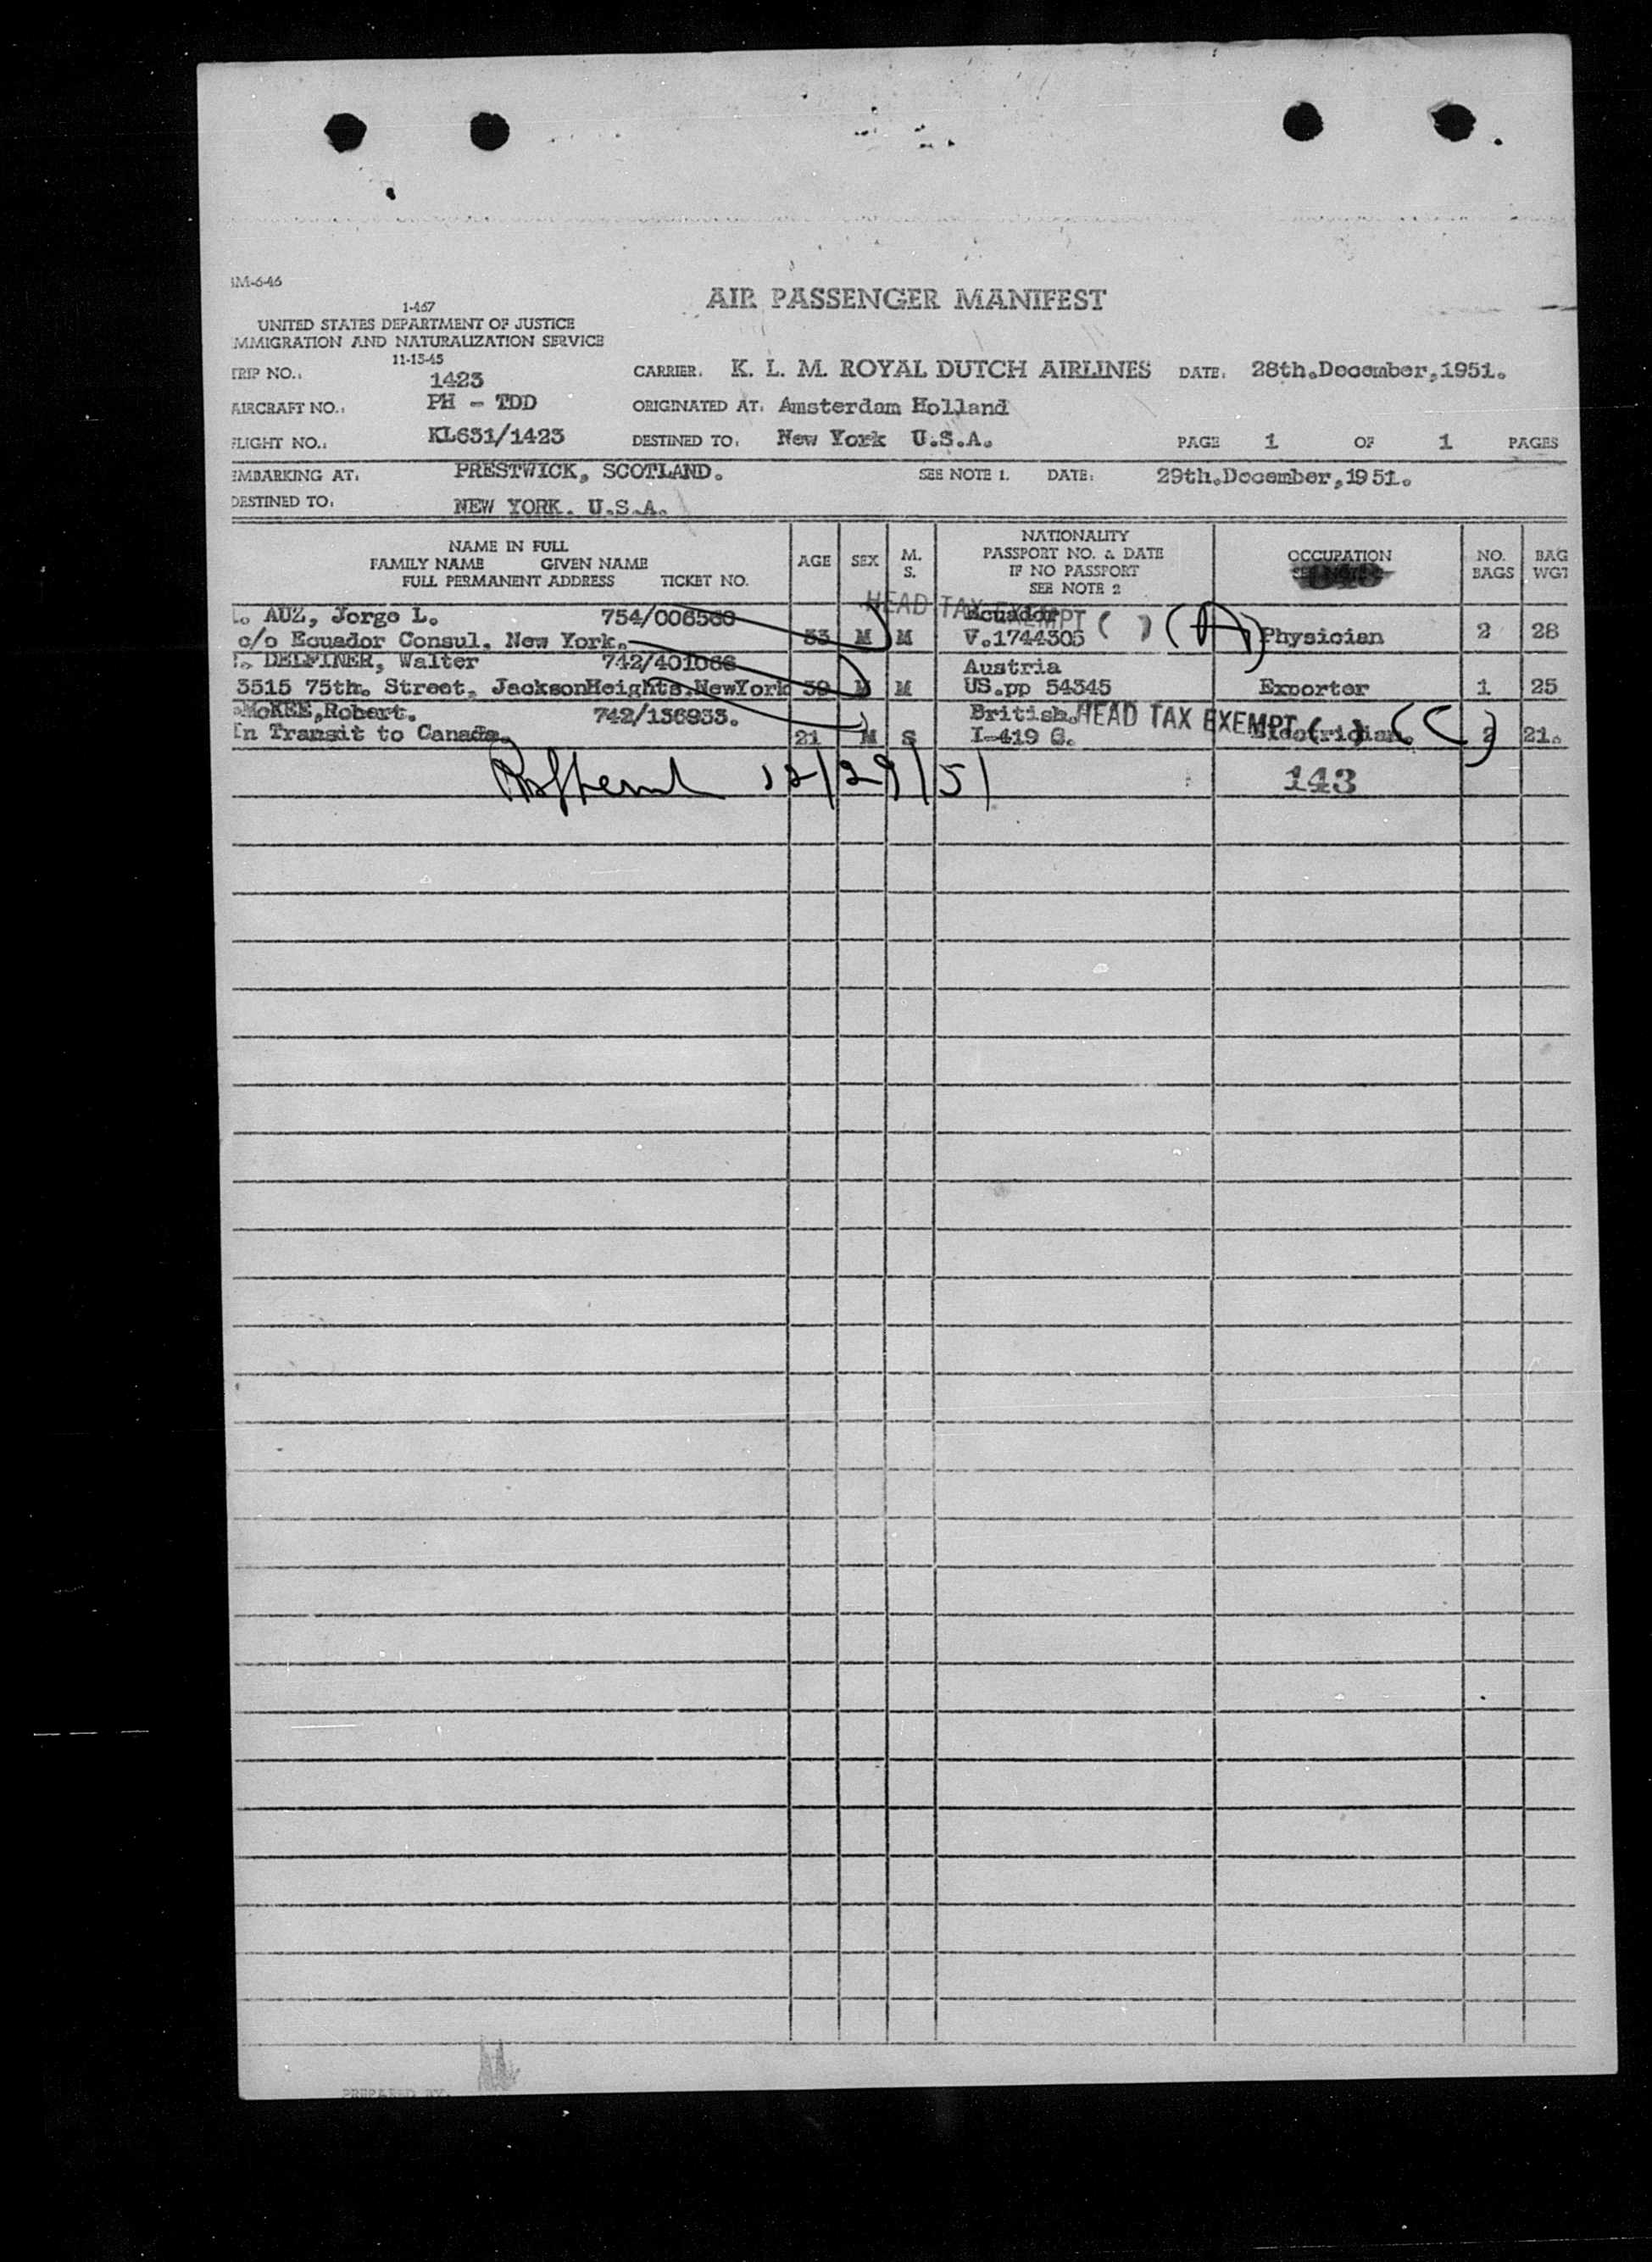 IM-6-46
AIR PASSENGER MANIFEST
1-467
UNITED STATES DEPARTMENT OF JUSTICE
MMIGRATION AND NATURALIZATION SERVICE
11-15-45
TRIP NO.: 1423 CARRIER: K. L. M. ROYAL DUTCH AIRLINES DATE: 28th.December,1951.
AIRCRAFT NO.: PH - TDD ORIGINATED AT: Amsterdam Holland
FLIGHT NO.: KL631/1423 DESTINED TO: New York U.S.A. PAGE 1 OF 1 PAGES
EMBARKING AT: PRESTWICK, SCOTLAND. SEE NOTE 1. DATE: 29th.December,1951.
DESTINED TO: NEW YORK. U.S.A.
NAME IN FULL
FAMILY NAME GIVEN NAME
FULL PERMANENT ADDRESS TICKET NO.
AGE SEX M. S.
NATIONALITY
PASSPORT NO. & DATE
IF NO PASSPORT
SEE NOTE 2
OCCUPATION
NO. BAGS
BAG WGT
HEAD TAX EXEMPT ( ) (A)
AUZ, Jorge L. 754/006560 Ecuador
c/o Ecuador Consul, New York. 33 M M V.1744306 Physician 2 28
DELFINER, Walter 742/401066 Austria
3515 75th. Street, JacksonHeights.NewYork 39 M M US.pp 54345 Exporter 1 25
McKEE,Robert. 742/136933. British. HEAD TAX EXEMPT ( ) (C)
In Transit to Canada. 21 M S I-419 G. Electrician. 2 21.
12/29/51
143
PREPARED BY: